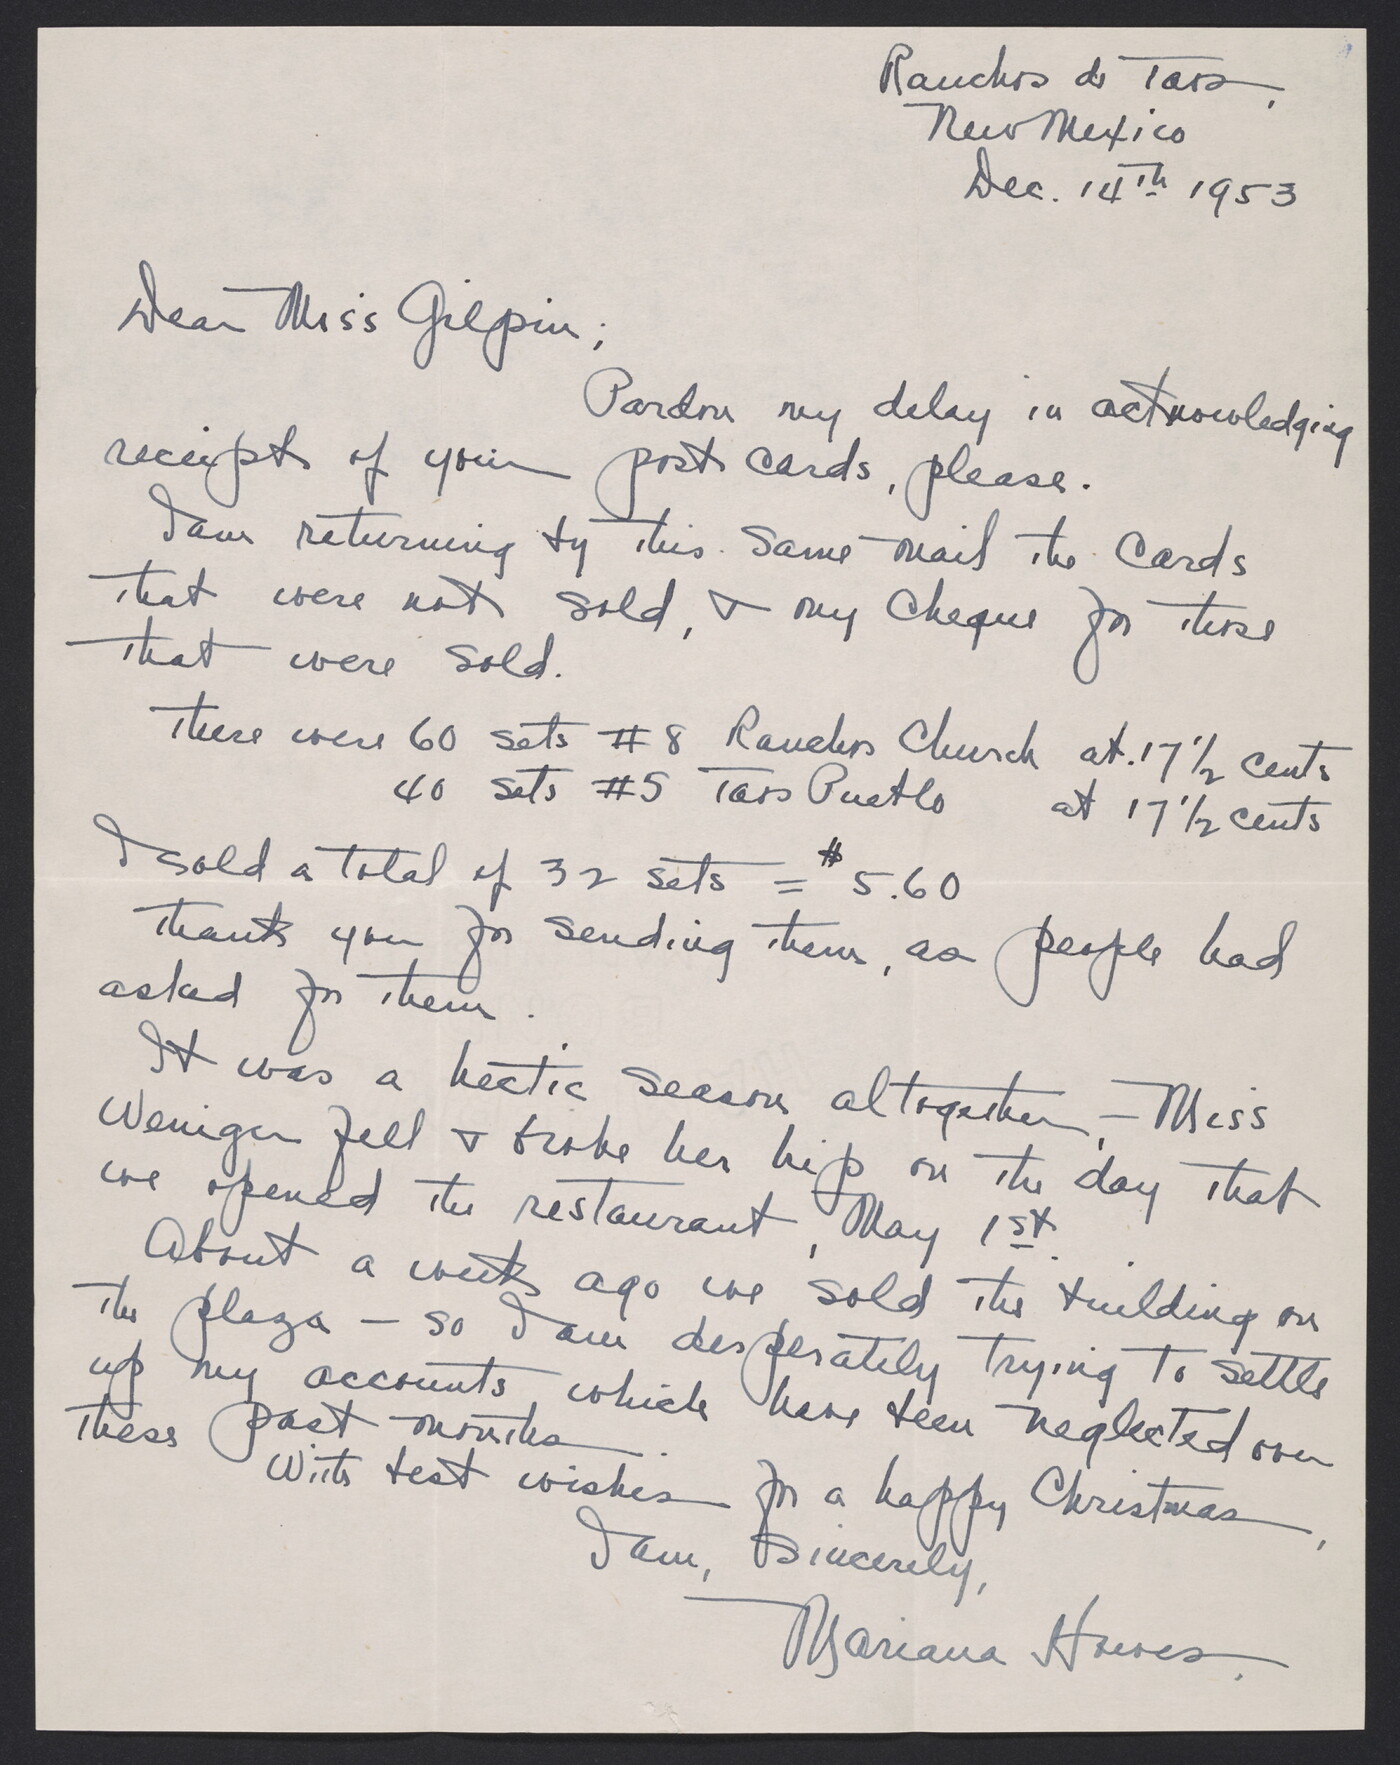 Ranchos de Taos,
New Mexico
Dec. 14th 1953
Dear Miss Gilpin;
Pardon my delay in acknowledging
receipt of your post cards, please.
I am returning by this same mail the cards
that were not sold, & my cheque for those
that were sold.
There were 60 sets #8 Ranchos Church at .17 1/2 cents
40 sets #5 Taos Pueblo at 17 1/2 cents
I sold a total of 32 sets = $5.60
Thank you for sending them, as people had
asked for them.
It was a hectic season altogether, - Miss
Weniger fell & broke her hip on the day that
we opened the restaurant, May 1st.
About a week ago we sold the building on
the plaza - so I am desperately trying to settle
up my accounts which have been neglected over
these past months.
With best wishes for a happy Christmas,
I am, Sincerely,
Mariana Howes.